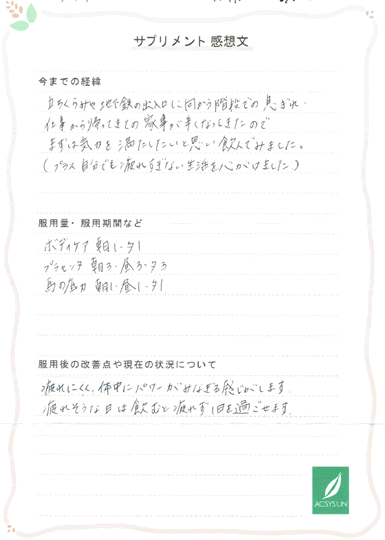 サプリメント 感想文
今までの経緯
立ちくらみや地下鉄の出入口に向かう階段での息ぎれ・
仕事から帰ってきての家事が辛くなってきたので
まずは気力を満たしたいと思い飲んでみました。
(プラス自分でも疲れすぎない生活を心がけました)
服用量・服用期間など
ボディケア 朝1-夕1
プラセンタ 朝3-昼3-夕3
馬の底力 朝1-昼1-夕1
服用後の改善点や現在の状況について
疲れにくく、体中にパワーがみなぎる感じがします
疲れそうな日は飲むと疲れず1日を過ごせます
ACSYSUN